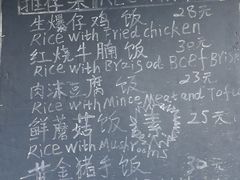 生爆仔鸡饭 28元
Rice with Fried chicken
红烧牛腩饭 30元
Rice with Braised Beef Bris
肉沫豆腐饭 23元
Rice with Mince Meat and Tofu
鲜蘑菇饭 素 25元
Rice with Mushrooms
黄金猪手饭 30元